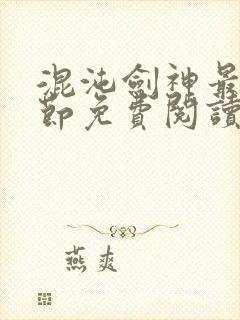 混沌劍神最
節免費閱讀
燕爽